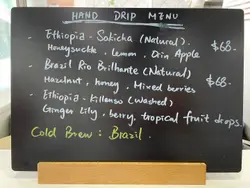 HAND DRIP MENU
- Ethiopia - Sakicha (Natural).
Honeysuckle, Lemon, Asian Apple
$68-
- Brazil Rio Brilhante (Natural)
Hazelnut, honey, Mixed berries
$68-
- Ethiopia - Killenso (Washed)
Ginger Lily, berry, tropical fruit drops
Cold Brew : Brazil.